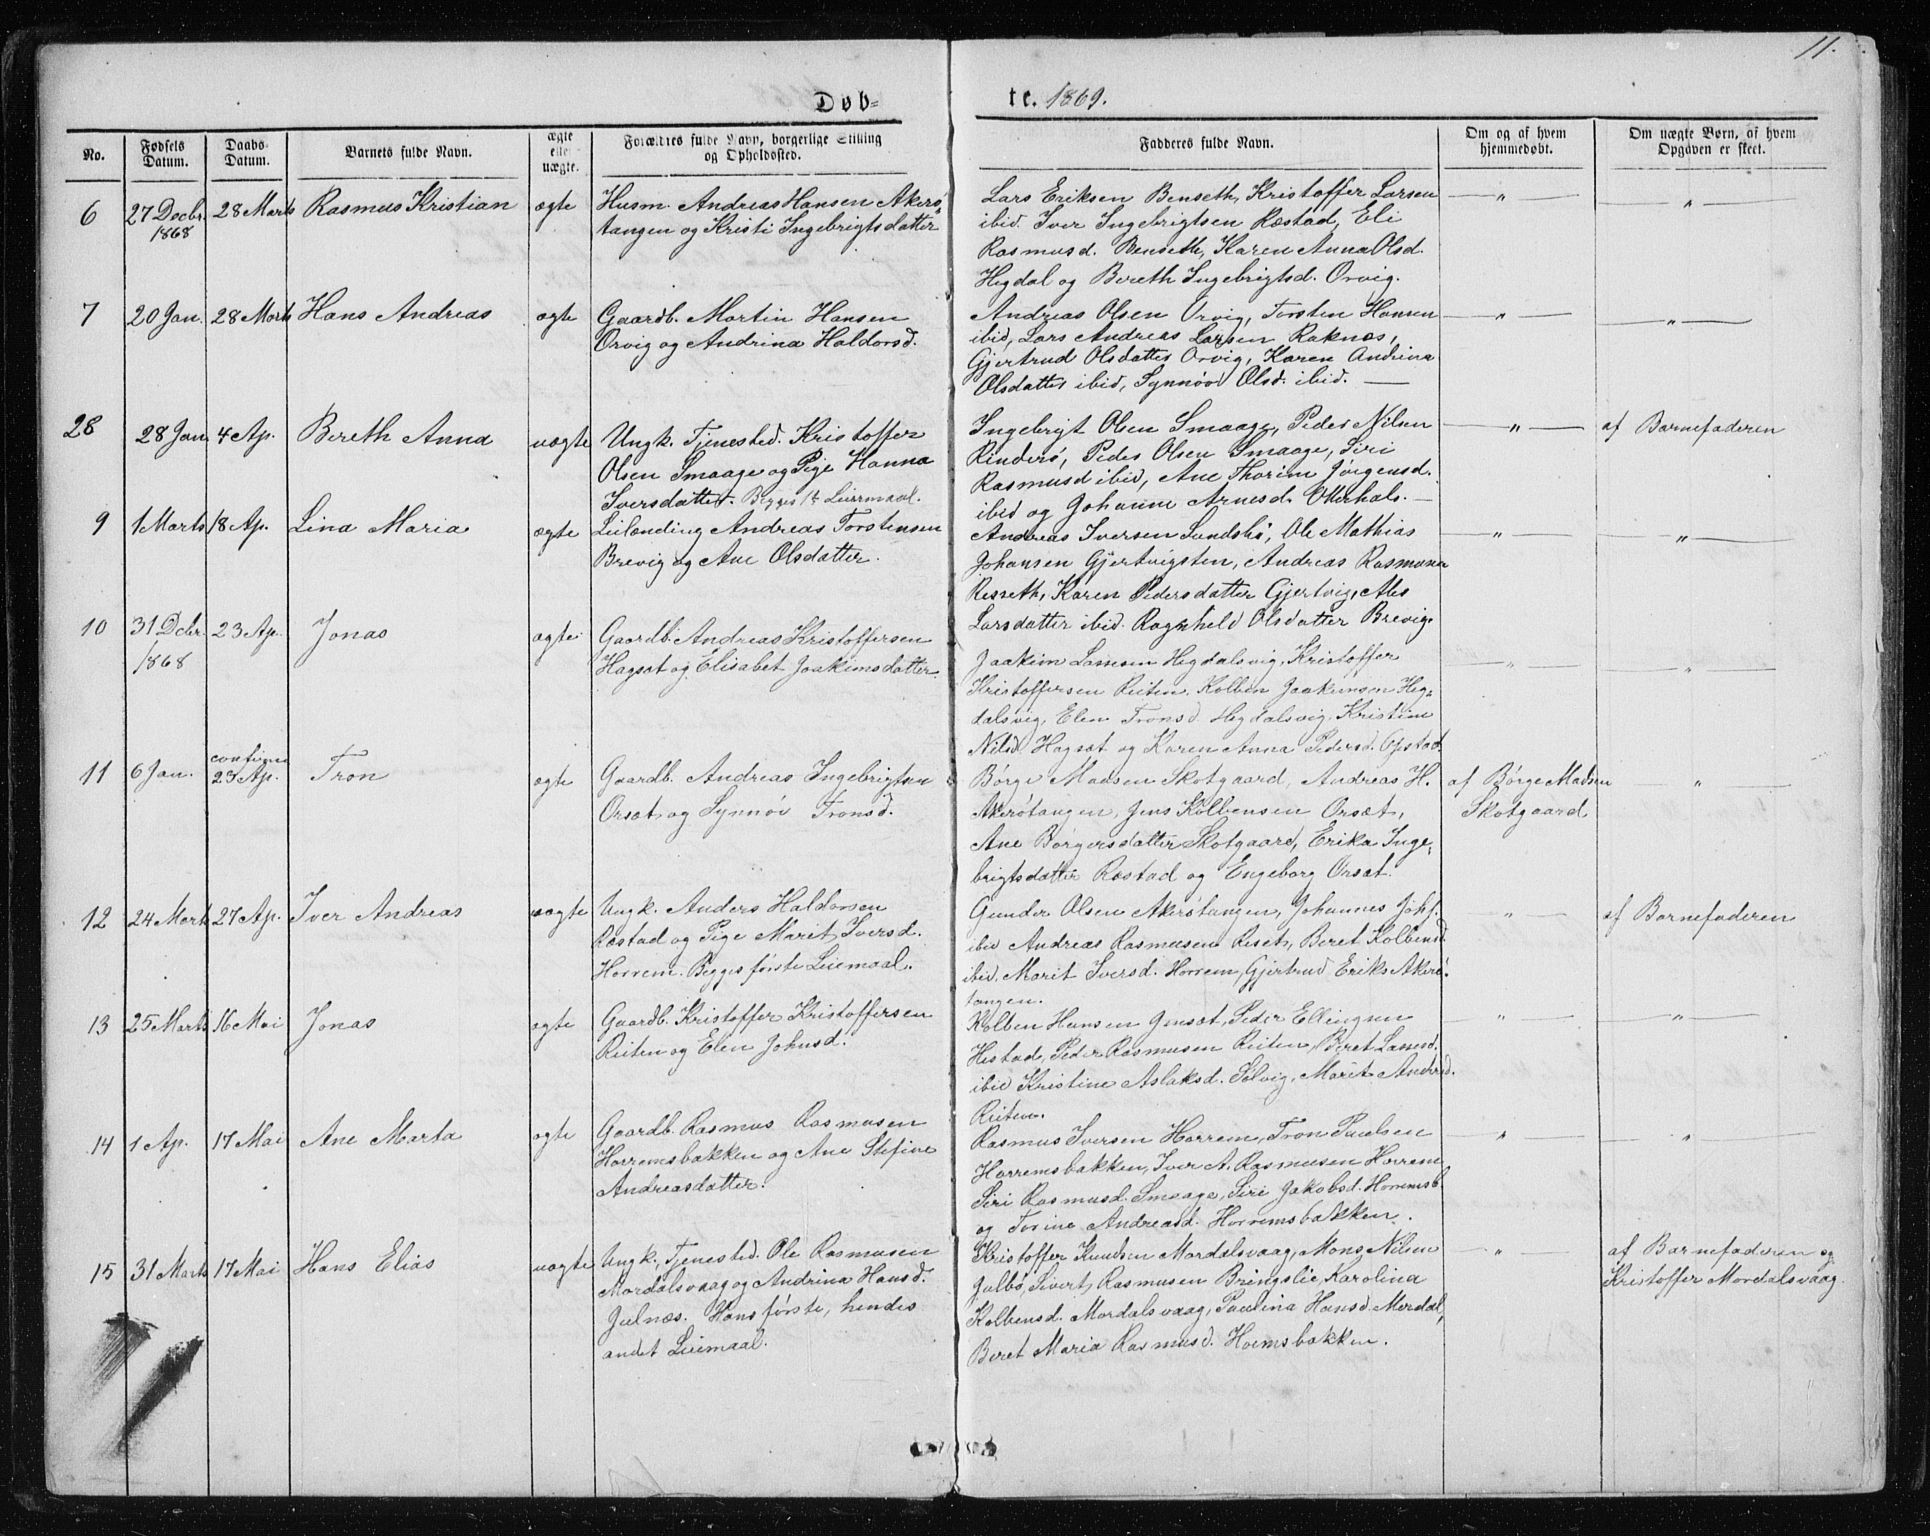 11.
Døb-
te. 1869.
No.
Fødsels Datum.
Daabs-Datum.
Barnets fulde Navn.
ægte eller uægte.
Forældres fulde Navn, borgerlige Stilling og Opholdssted.
Fadderes fulde Navn.
Om og af hvem hjemmedøbt.
Om uægte Børn, af hvem Opgaven er skeet.
6 27 Decbr. 28 Marts Rasmus Kristian ægte Husm. Andreas Hansen Akerø-
1868 tangen og Kristi Ingebrigtsdatter
Lars Eriksen Benseth, Kristoffer Larsen — " — — " —
ibid. Iver Ingebrigtsen Ræstad, Eli
Rasmusd. Benseth, Karen Anna Olsd.
Hegdal og Bereth Ingebrigtsd. Orvig.
7 20 Jan. 28 Marts Hans Andreas ægte Gaardb. Martin Hansen
Orvig og Andrina Haldorsd.
Andreas Olsen Orvig, Torsten Hansen — " — — " —
ibid, Lars Andreas Larsen Raknes,
Gjertrud Olsdatter Orvig, Karen Andrina
Olsdatter ibid, Synnøv Olsd. ibid. —
28 28 Jan. 4 Ap. Bereth Anna uægte Ungk. Tjenested. Kristoffer
Olsen Smaage og Pige Hanna
Iversdatter. Begges 1ste Leiermaal.
Ingebrigt Olsen Smaage, Peder Nilsen — " — af Barnefaderen
Rinderø, Peder Olsen Smaage, Siri
Rasmusd ibid, Ane Thorine Jørgensd.
ibid og Johanne Arnesd. Otterhals. —
9 1 Marts 18 Ap. Lina Maria ægte Leilending Andreas Torstensen
Brevig og Ane Olsdatter.
Andreas Iversen Sundsbø, Ole Mathias — " — — " —
Johansen Gjertvigsten, Andreas Rasmusen
Resseth, Karen Pedersdatter Gjertvig, Ales
Larsdatter ibid. Ragnheld Olsdatter Brevig.
10 31 Dcbr. 23 Ap. Jonas ægte Gaardb. Andreas Kristoffersen
1868 Hagsæt og Elisabet Joakimsdatter
Joakim Lassen Hegdalsvig, Kristoffer — " — — " —
Kristoffersen Reiten, Kolben Joakimsen Heg-
dalsvig, Elen Tronsd. Hegdalsvig, Kristine
Nilsd. Hagsæt og Karen Anna Pedersd. Opstad
11 6 Jan. confirm. 23 Ap. Tron ægte Gaardb. Andreas Ingebrigtsen
Orsæt og Synnøv Tronsd.
Børge Madsen Skotgaard, Andreas H. af Børge Madsen — " —
Akerøtangen, Jens Kolbensen Orsæt, Skotgaard
Ane Børgersdatter Skotgaard, Erika Inge-
brigtsdatter Ræstad og Engeborg Orsæt.
12 24 Marts 27 Ap. Iver Andreas uægte Ungk. Anders Haldorsen
Ræstad og Pige Marit Iversd.
Horrem. Begges første Leiemaal.
Gunder Olsen Akerøtangen, Johannes Johs. — " — af Barnefaderen
ibid Andreas Rasmusen Reset, Beret Kolbensd
ibid, Marit Iversd. Horrem, Gjertrud Eriks Akerø-
tangen.
13 25 Marts 16 Mai Jonas ægte Gaardb. Kristoffer Kristoffersen
Reiten og Elen Johnsd.
Kolben Hansen Jenset, Peder Ellingsen — " — — " —
Hestad, Peder Rasmusen Reiten, Beret Lassesd.
ibid Kristine Aslaksd. Sølvig, Marit Andersd.
Reiten.
14 1 Ap. 17 Mai Ane Marta ægte Gaardb. Rasmus Rasmusen
Horremsbakken og Ane Stefine
Andreasdatter.
Rasmus Iversen Horrem, Tron Paulsen — " — — " —
Horremsbakken, Iver A. Rasmusen Horrem
Siri Rasmusd. Smaage, Siri Jakobsd. Horremsb.
og Torine Andreasd. Horremsbakken.
15 31 Marts 17 Mai Hans Elias uægte Ungk. Tjenested. Ole Rasmusen
Mordalsvaag og Andrina Hansd.
Julnæs. Hans første, hendes
andet Leiemaal.
Kristoffer Knudsen Mordalsvaag, Mons Nilsen — " — af Barnefaderen og
Julbø, Sivert Rasmusen Bringslie, Karolina Kristoffer Mordalsvaag.
Kolbensd. Mordalsvaag, Paulina Hansd. Mordal,
Beret Maria Rasmusd. Horemsbakken.